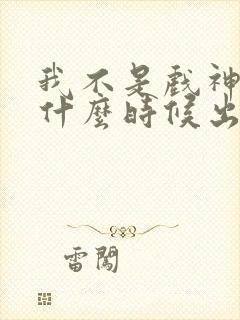 我不是戲神
什麼時候出
雷闖